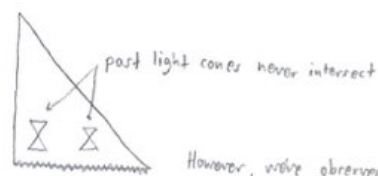 past light cones never intersect
However, we've observed